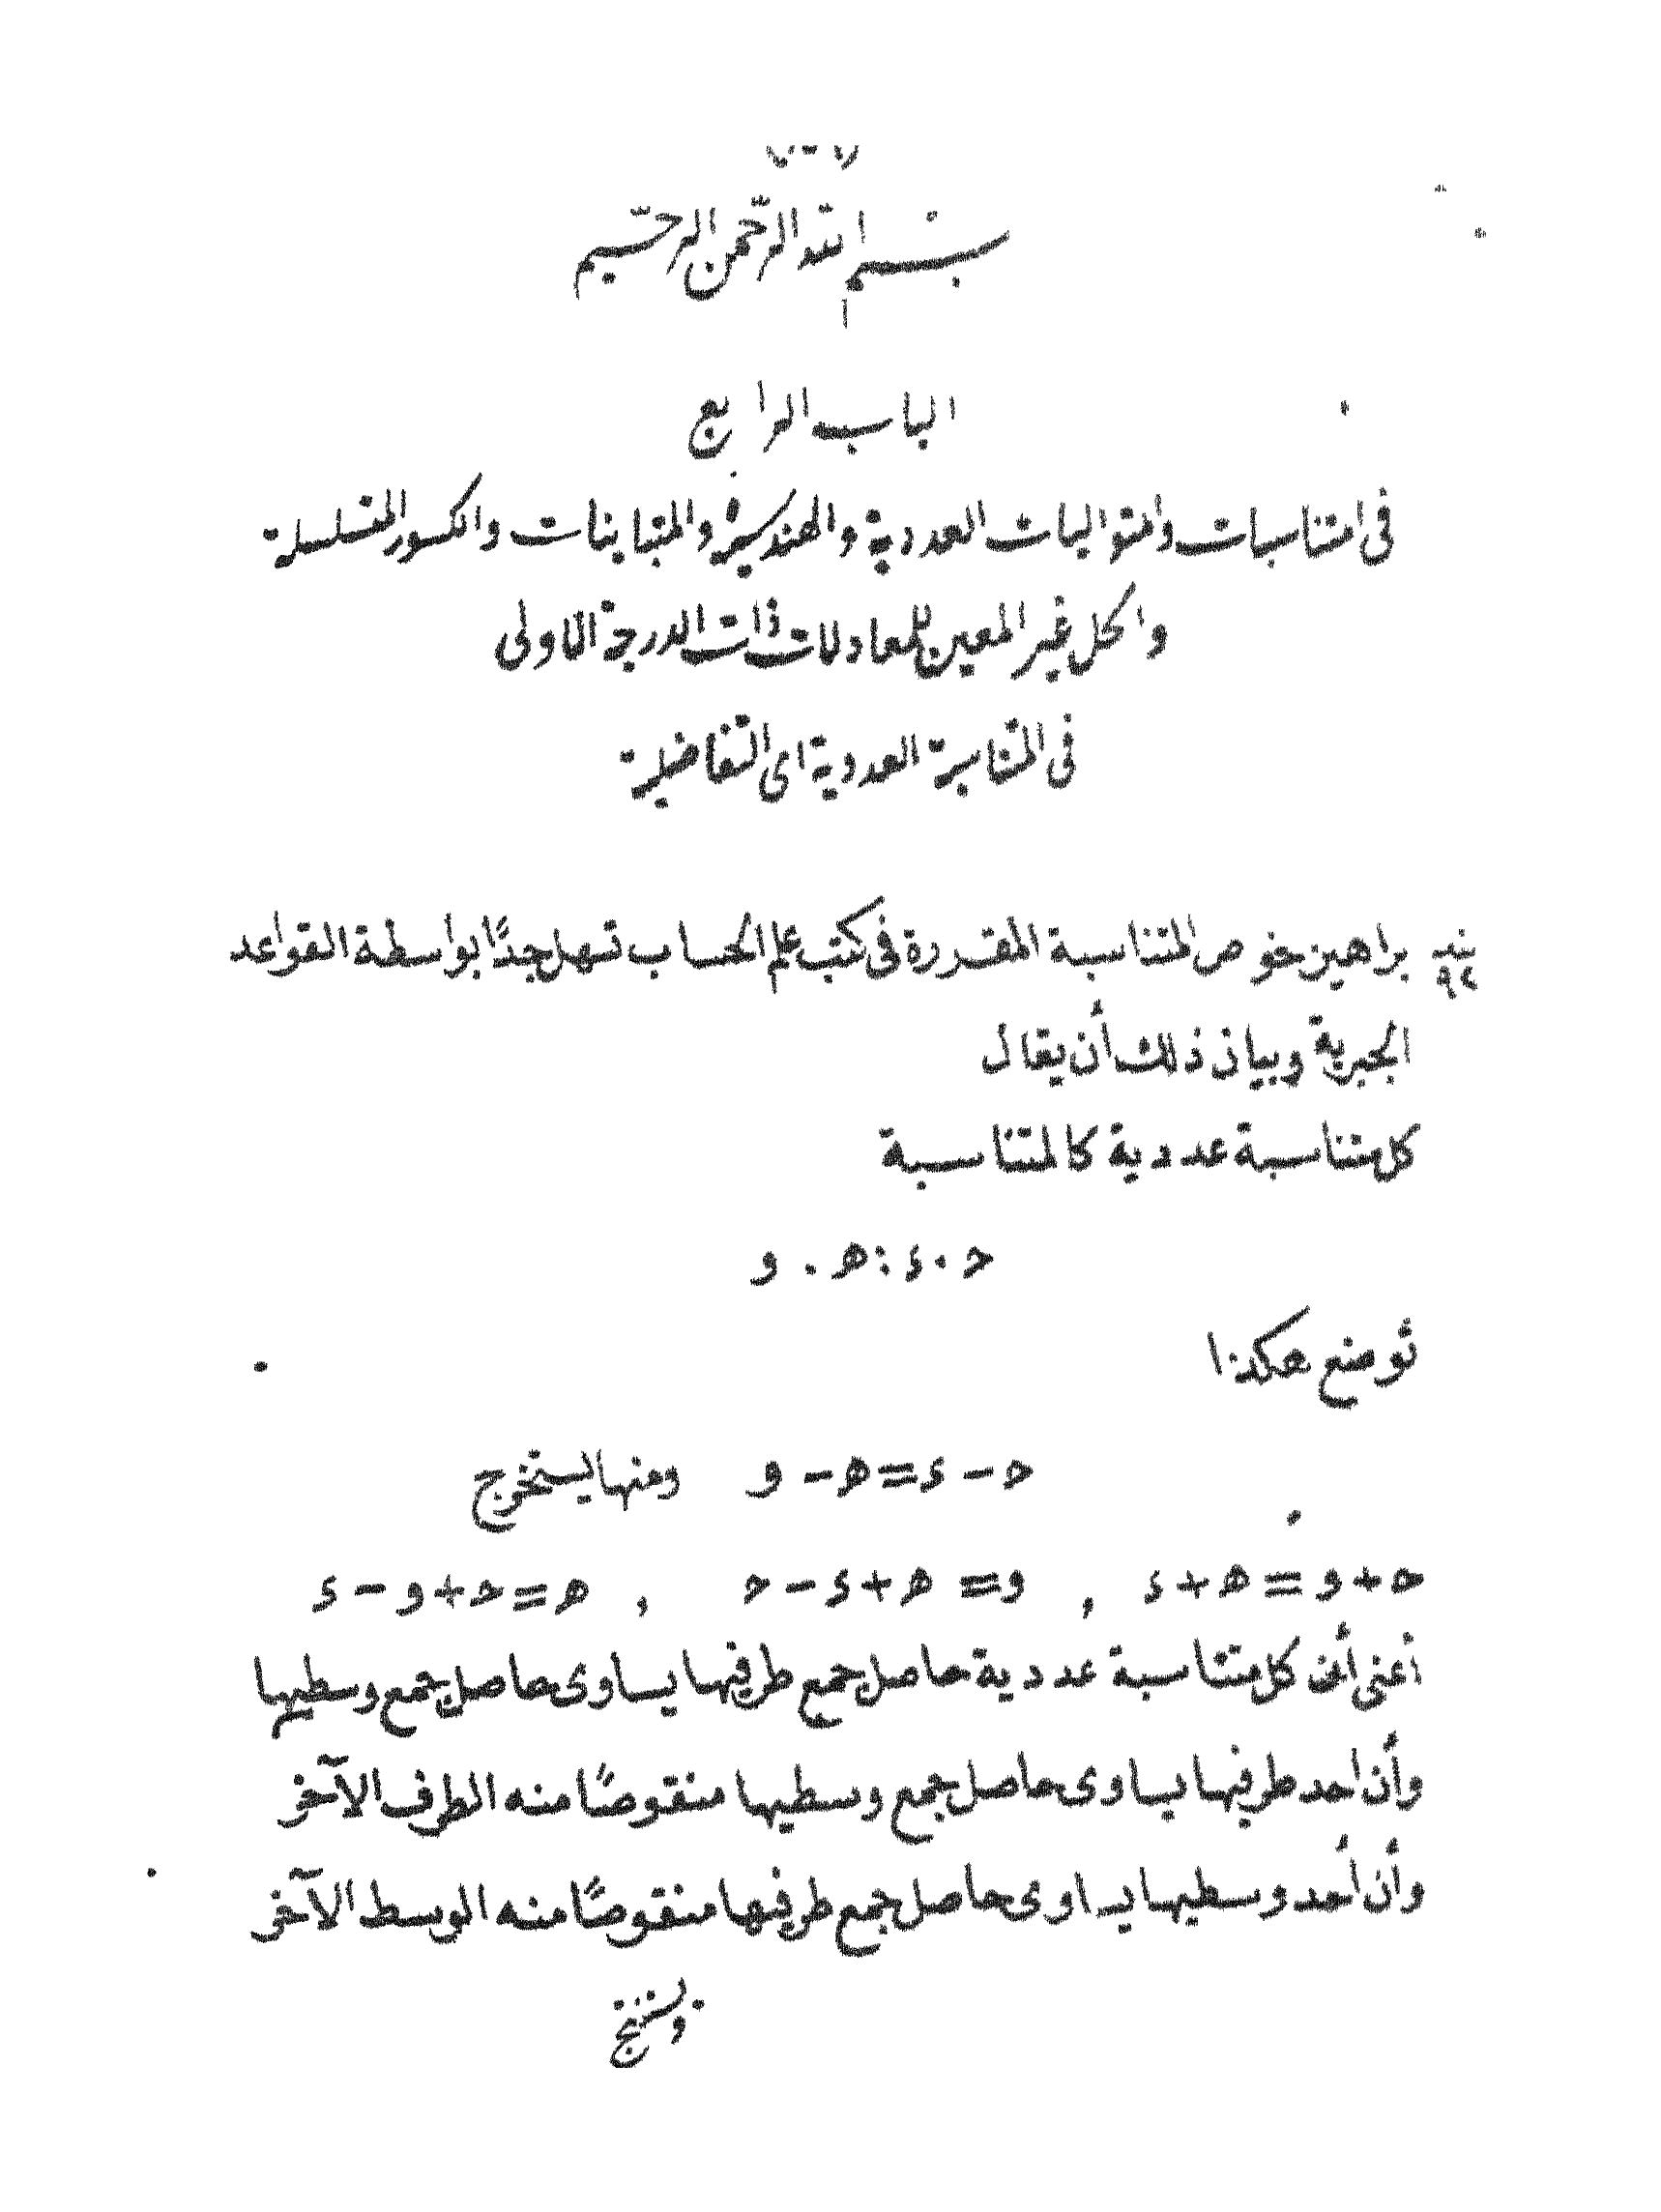 بسم الله الرحمن الرحيم
الباب الرابع
فى امتناسبات وامتواليات العددية والهندسية والمتباينات والكسور المتسلسلة
والحل غير المعين للمعادلات ذات الدرجة الاولى
فى المتناسبة العددية اى التفاضلية
بند ٩٤ براهين خوص المتناسبة المقررة فى كتب علم الحساب تسهل جدًا بواسطة القواعد
الجبرية وبيان ذلك أن يقال
كل متناسبة عددية كالمتناسبة
ح . ء : ه . و
توضع هكذا
ح - ء = ه - و ومنها يستخرج
ح + و = ه + ء , و = ه + ء - ح , ه = ح + و - ء
أعنى أن كل متناسبة عددية حاصل جمع طرفيها يساوى حاصل جمع وسطيها
وأن احد طرفيها يساوى حاصل جمع وسطيها منقوصًا منه الطرف الآخر
وأن أحد وسطيها يساوى حاصل جمع طرفيها منقوصًا منه الوسط الآخر
وتستنتج